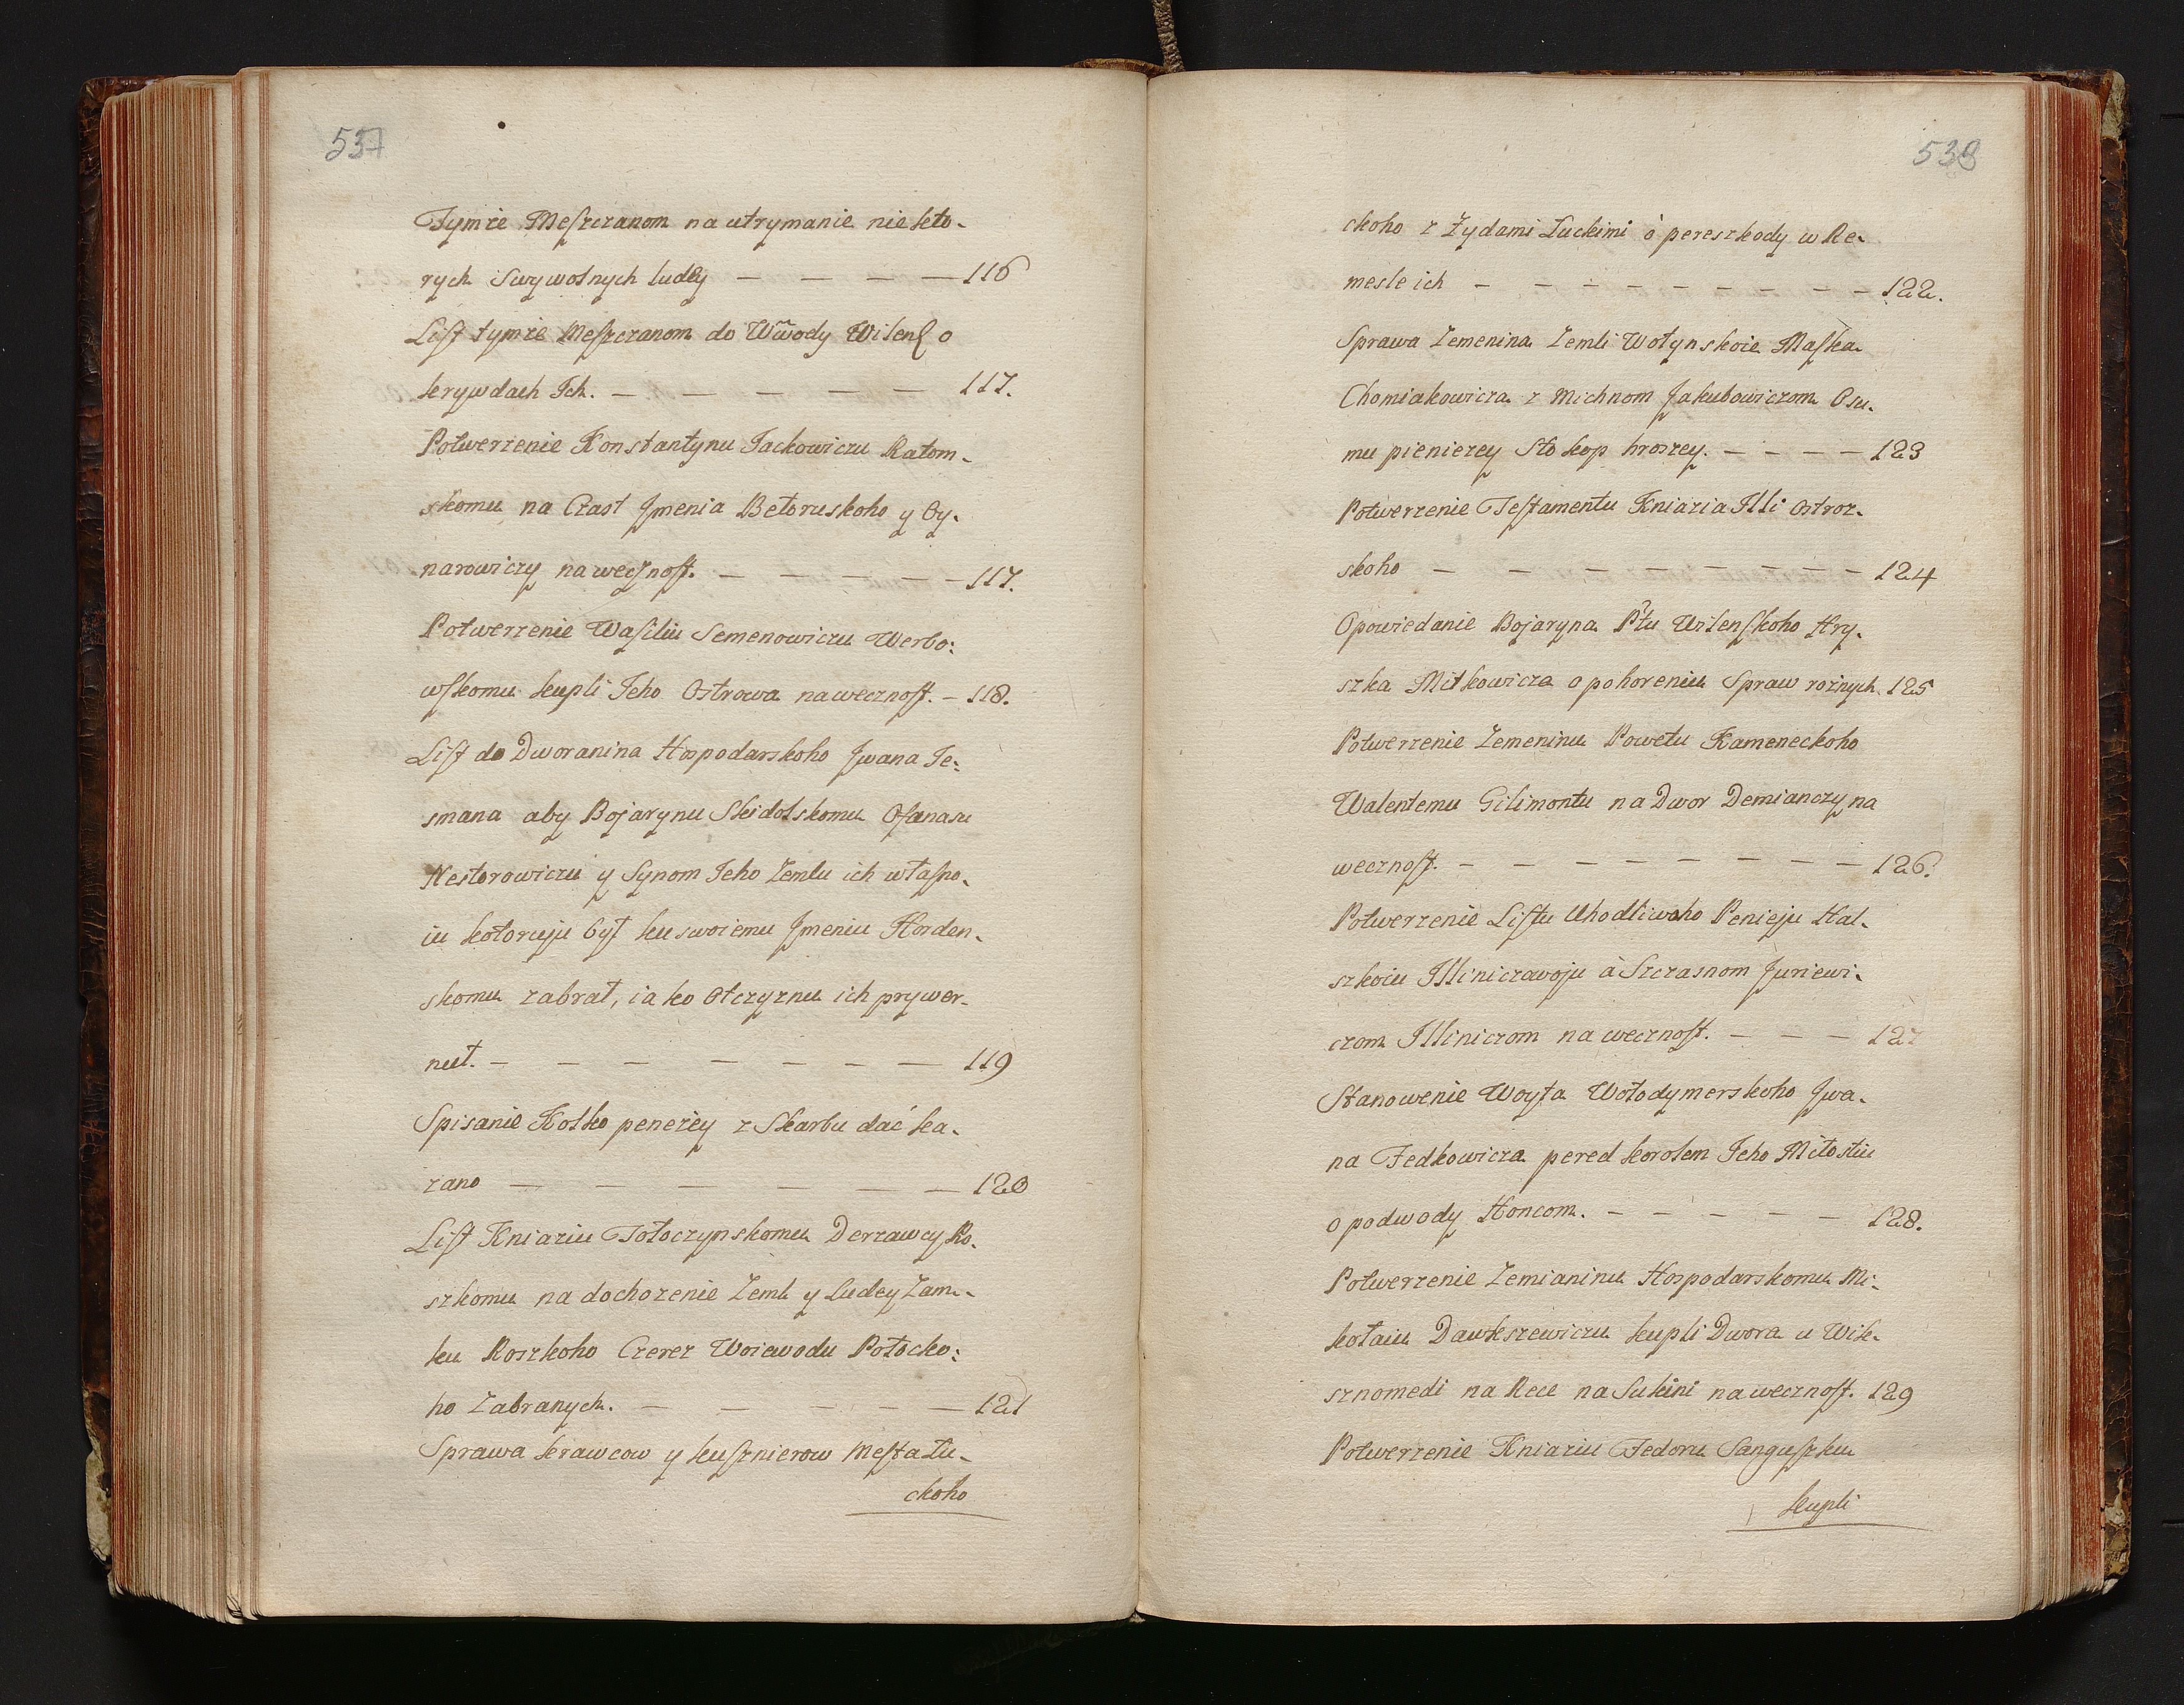 537
Tymże Meſzczanom na utrymanie niekto-
rych Swywolnych ludey — — — — 116
Liſt tymże Meſzczanom do Wwody Wilenſ o
krywdach Ich. — — — — — 117.
Potwerżenie Konstantynu Jackowiczu Ratom-
skomu na Czast Jmenia Bełoruskoho y Oy-
narowiczy na wecznoſt. — — — — — 117.
Potwerżenie Waſiliu Semenowiczu Werbo:
wſkomu kupli Jeho Ostrowa na wecznoſt. — 118.
Liſt do Dworanina Hospodarskoho Jwana Je:
smana aby Bojarynu Skidolskomu Ofanasu
Nestorowiczu y Synom Jeho Zemlu ich właſno-
iu kotoruju był ku swoiemu Jmeniu Horden-
skomu zabrał, iako Otczyznu ich prywer-
nuł. — — — — — — — 119
Spisanie Kolko penežey z Skarbu dać ka-
zano — — — — — — 120
Liſt Kniaziu Tołoczynskomu Derżawcy Ro-
szkomu na dochożenie Zeml y Ludey Zam-
ku Roszkoho Czerez Woiewodu Połocko:
ho Zabranych. — — — — — 121
Sprawa krawcow y kuſznierow Meſta Łu-
ckoho
538
ckoho z Żydami Łuckimi ò pereszkody w Re-
mesle ich — — — — — — — — — 122.
Sprawa Zemenina Zemli Wołynskoie Maſka
Chomiakowicza z Michnom Jakubowiczom O su-
mu pieniezey Sto kop hroszey. — — — — 123
Potwerżenie Teſtamentu Kniazia Illi Ostroz-
skoho — — — — — — — — 124
Opowiedanie Bojaryna Ptu Wilenſkoho Hry-
szka Mitkowicza o pohoreniu Spraw rożnych. 125
Potwerżenie Zemeninu Powetu Kameneckoho
Walentemu Gilimontu na Dwor Demianczy na
wecznoſt. — — — — — — — — 126.
Potwerżenie Liſtu Uhodliwoho Penieju Hal-
szkoiu Jlliniczawoju à Szczasnom Juriewi-
czom Jlliniczom na wecznoſt. — — — 127
Stanowenie Woyta Wołodymerskoho Jwa-
na Fedkowicza pered korolem Jeho Miłostiu
o podwody Honcom. — — — — — 128.
Potwerżenie Zemianinu Hospodarskomu Mi-
kołaiu Dawkszewiczu kupli Dwora u Wilk-
sznomedi na Rece na Sukini na wecznoſt. 129
Potwerżenie Kniaziu Fedoru Sanguſzku
kupli